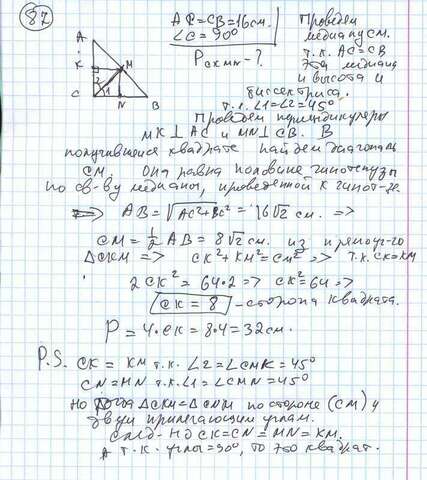 87
AC = CB = 16 см.
∠C = 90°
P скмн - ?
A
K
C
M
N
B
2
1
Проведём
медиану СМ.
т.к. AC = CB
эта медиана
и высота и
биссектриса.
т.е. ∠1 = ∠2 = 45°
Проведём перпендикуляры
MK ⊥ AC и MN ⊥ CB. В
получившемся квадрате найдём диагональ
CM. Она равна половине гипотенузы
по св-ву медианы, проведённой к гипот-зе.
=> AB = √AC²+BC² = 16√2 см. =>
CM = 1/2 AB = 8√2 см. из прямоуг-го
ΔCKM => CK² + KM² = CM² => т.к. CK = KM
2CK² = 64·2 => CK² = 64 =>
CK = 8 - сторона квадрата.
P = 4·CK = 8·4 = 32 см.
P.S. CK = KM т.к. ∠2 = ∠CMK = 45°
CN = MN т.к. ∠1 = ∠CMN = 45°
Но тогда ΔCKM = ΔCNM по стороне (CM) и
двум прилегающим углам.
след-но CK = CN = MN = KM.
А т.к. углы = 90°, то это квадрат.